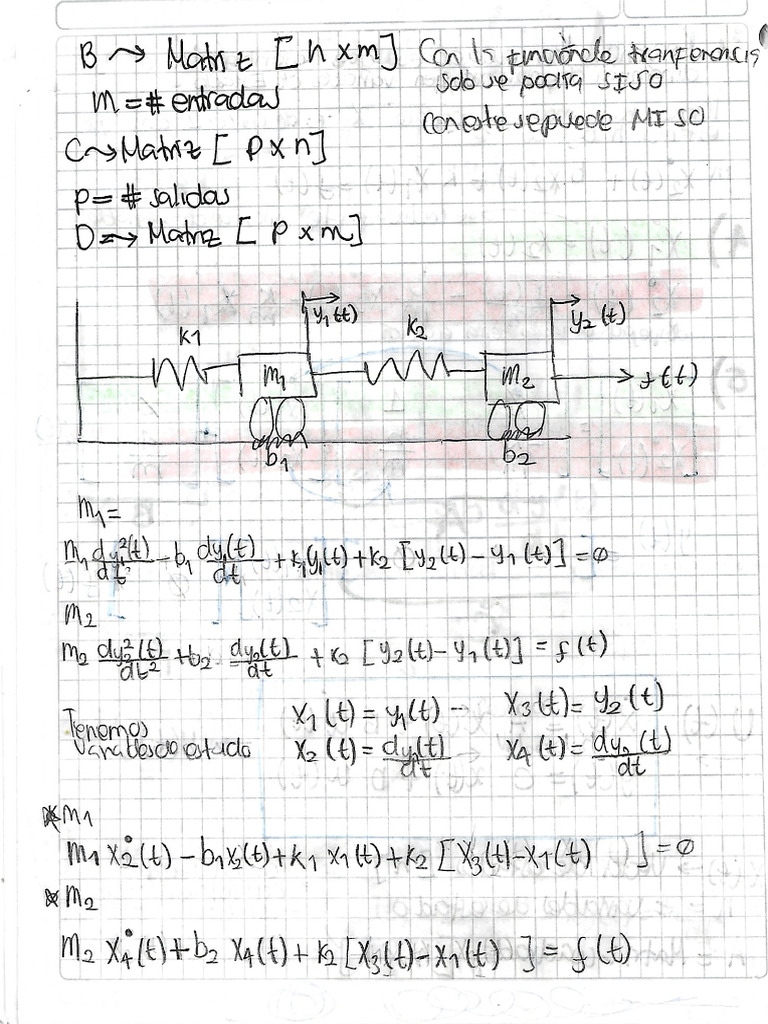 B ⇝ Matriz [n x m]
m = # entradas
C ⇝ Matriz [p x n]
p = # salidas
D ⇝ Matriz [p x m]
Con la función de tranferencia
solo se podia SISO
con este se puede MISO
k1
y₁(t)
k₂
y₂(t)
m₁
m₂
f(t)
b₁
b₂
m₁ =
m₁ dy₁²(t)/dt² - b₁ dy₁(t)/dt + k₁y₁(t) + k₂ [y₂(t) - y₁(t)] = ∅
m₂
m₂ dy₂²(t)/dt² + b₂ dy₂(t)/dt + k₂ [y₂(t) - y₁(t)] = f(t)
Tenemos
variables de estado
x₁(t) = y₁(t) - x₃(t) = y₂(t)
x₂(t) = dy₁(t)/dt x₄(t) = dy₂(t)/dt
* m₁
m₁ ẋ₂(t) - b₁x₂(t) + k₁ x₁(t) + k₂ [x₃(t) - x₁(t) ] = ∅
* m₂
m₂ ẋ₄(t) + b₂ x₄(t) + k₂ [x₃(t) - x₁(t) ] = f(t)